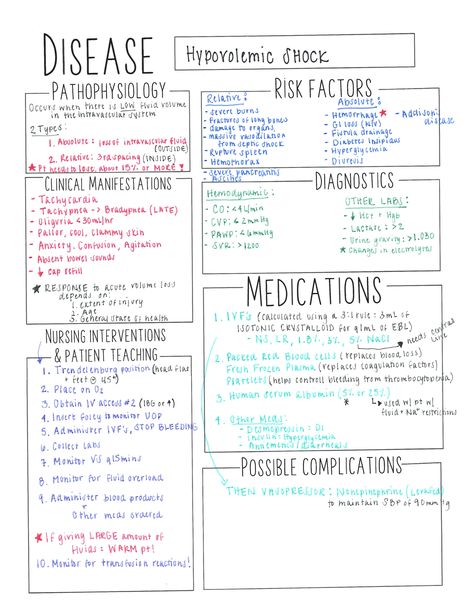 DISEASE
Hypovolemic Shock
PATHOPHYSIOLOGY
Occurs when there is LOW fluid volume
in the intravascular system
2 Types:
1. Absolute: loss of intravascular fluid
(OUTSIDE)
2. Relative: 3rd spacing (INSIDE)
* Pt needs to lose about 15% or MORE!
RISK FACTORS
Relative:
- severe burns
- fractures of long bones
- damage to organs,
massive vasodilation
from septic shock
- Rupture spleen
- Hemothorax
- severe pancreatitis
- Ascites
Absolute:
- Hemorrhage *
- GI loss (N/V)
- Fistula drainage
- Diabetes Insipidus
- Hyperglycemia
- Diuresis
- Addisons
disease
CLINICAL MANIFESTATIONS
- Tachycardia
- Tachypnea → Bradypnea (LATE)
- Oliguria <30ml/hr
- Pallor, cool, clammy skin
- Anxiety, Confusion, Agitation
- Absent bowel sounds
- ↓ cap refill
* RESPONSE to acute volume loss
depends on:
1. extent of injury
2. Age
3. General state of health
DIAGNOSTICS
Hemodynamic:
- CO: <4L/min
- CVP: <2mmHg
- PAWP: <6mmHg
- SVR: >1200
OTHER LABS:
- ↓ Hct + Hgb
- Lactate: >2
- Urine gravity: >1.030
* Changes in electrolytes
MEDICATIONS
1. IVF's (calculated using a 3:1 rule: 3mL of
ISOTONIC CRYSTALLOID for q1mL of EBL)
- NS, LR, 1.8%, 3%, 5% NaCl
needs central
line
2. Packed Red Blood cells (replaces blood loss)
Fresh Frozen Plasma (replaces coagulation factors)
Platelets (helps control bleeding from thrombocytopenia)
3. Human Serum Albumin (5% or 25%)
* used w/ pt w/
fluid + Na+ restrictions
4. Other Meds:
- Desmopressin: DI
- Insulin: Hyperglycemia
- Antiemetics/diarrheals
NURSING INTERVENTIONS
& PATIENT TEACHING
1. Trendelenburg position (head flat
+ feet @ 45°)
2. Place on O2
3. Obtain IV access #2 (18G or ↑)
4. Insert foley to monitor UOP
5. Administer IVF's, STOP BLEEDING
6. Collect Labs
7. Monitor VS q15mins
8. Monitor for fluid overload
9. Administer blood products
+
Other meds ordered
* If giving LARGE amount of
fluids: WARM pt!
10. Monitor for transfusion reactions!
POSSIBLE COMPLICATIONS
THEN VASOPRESSOR: Norepinephrine (Levophed)
to maintain SBP of 90mmHg